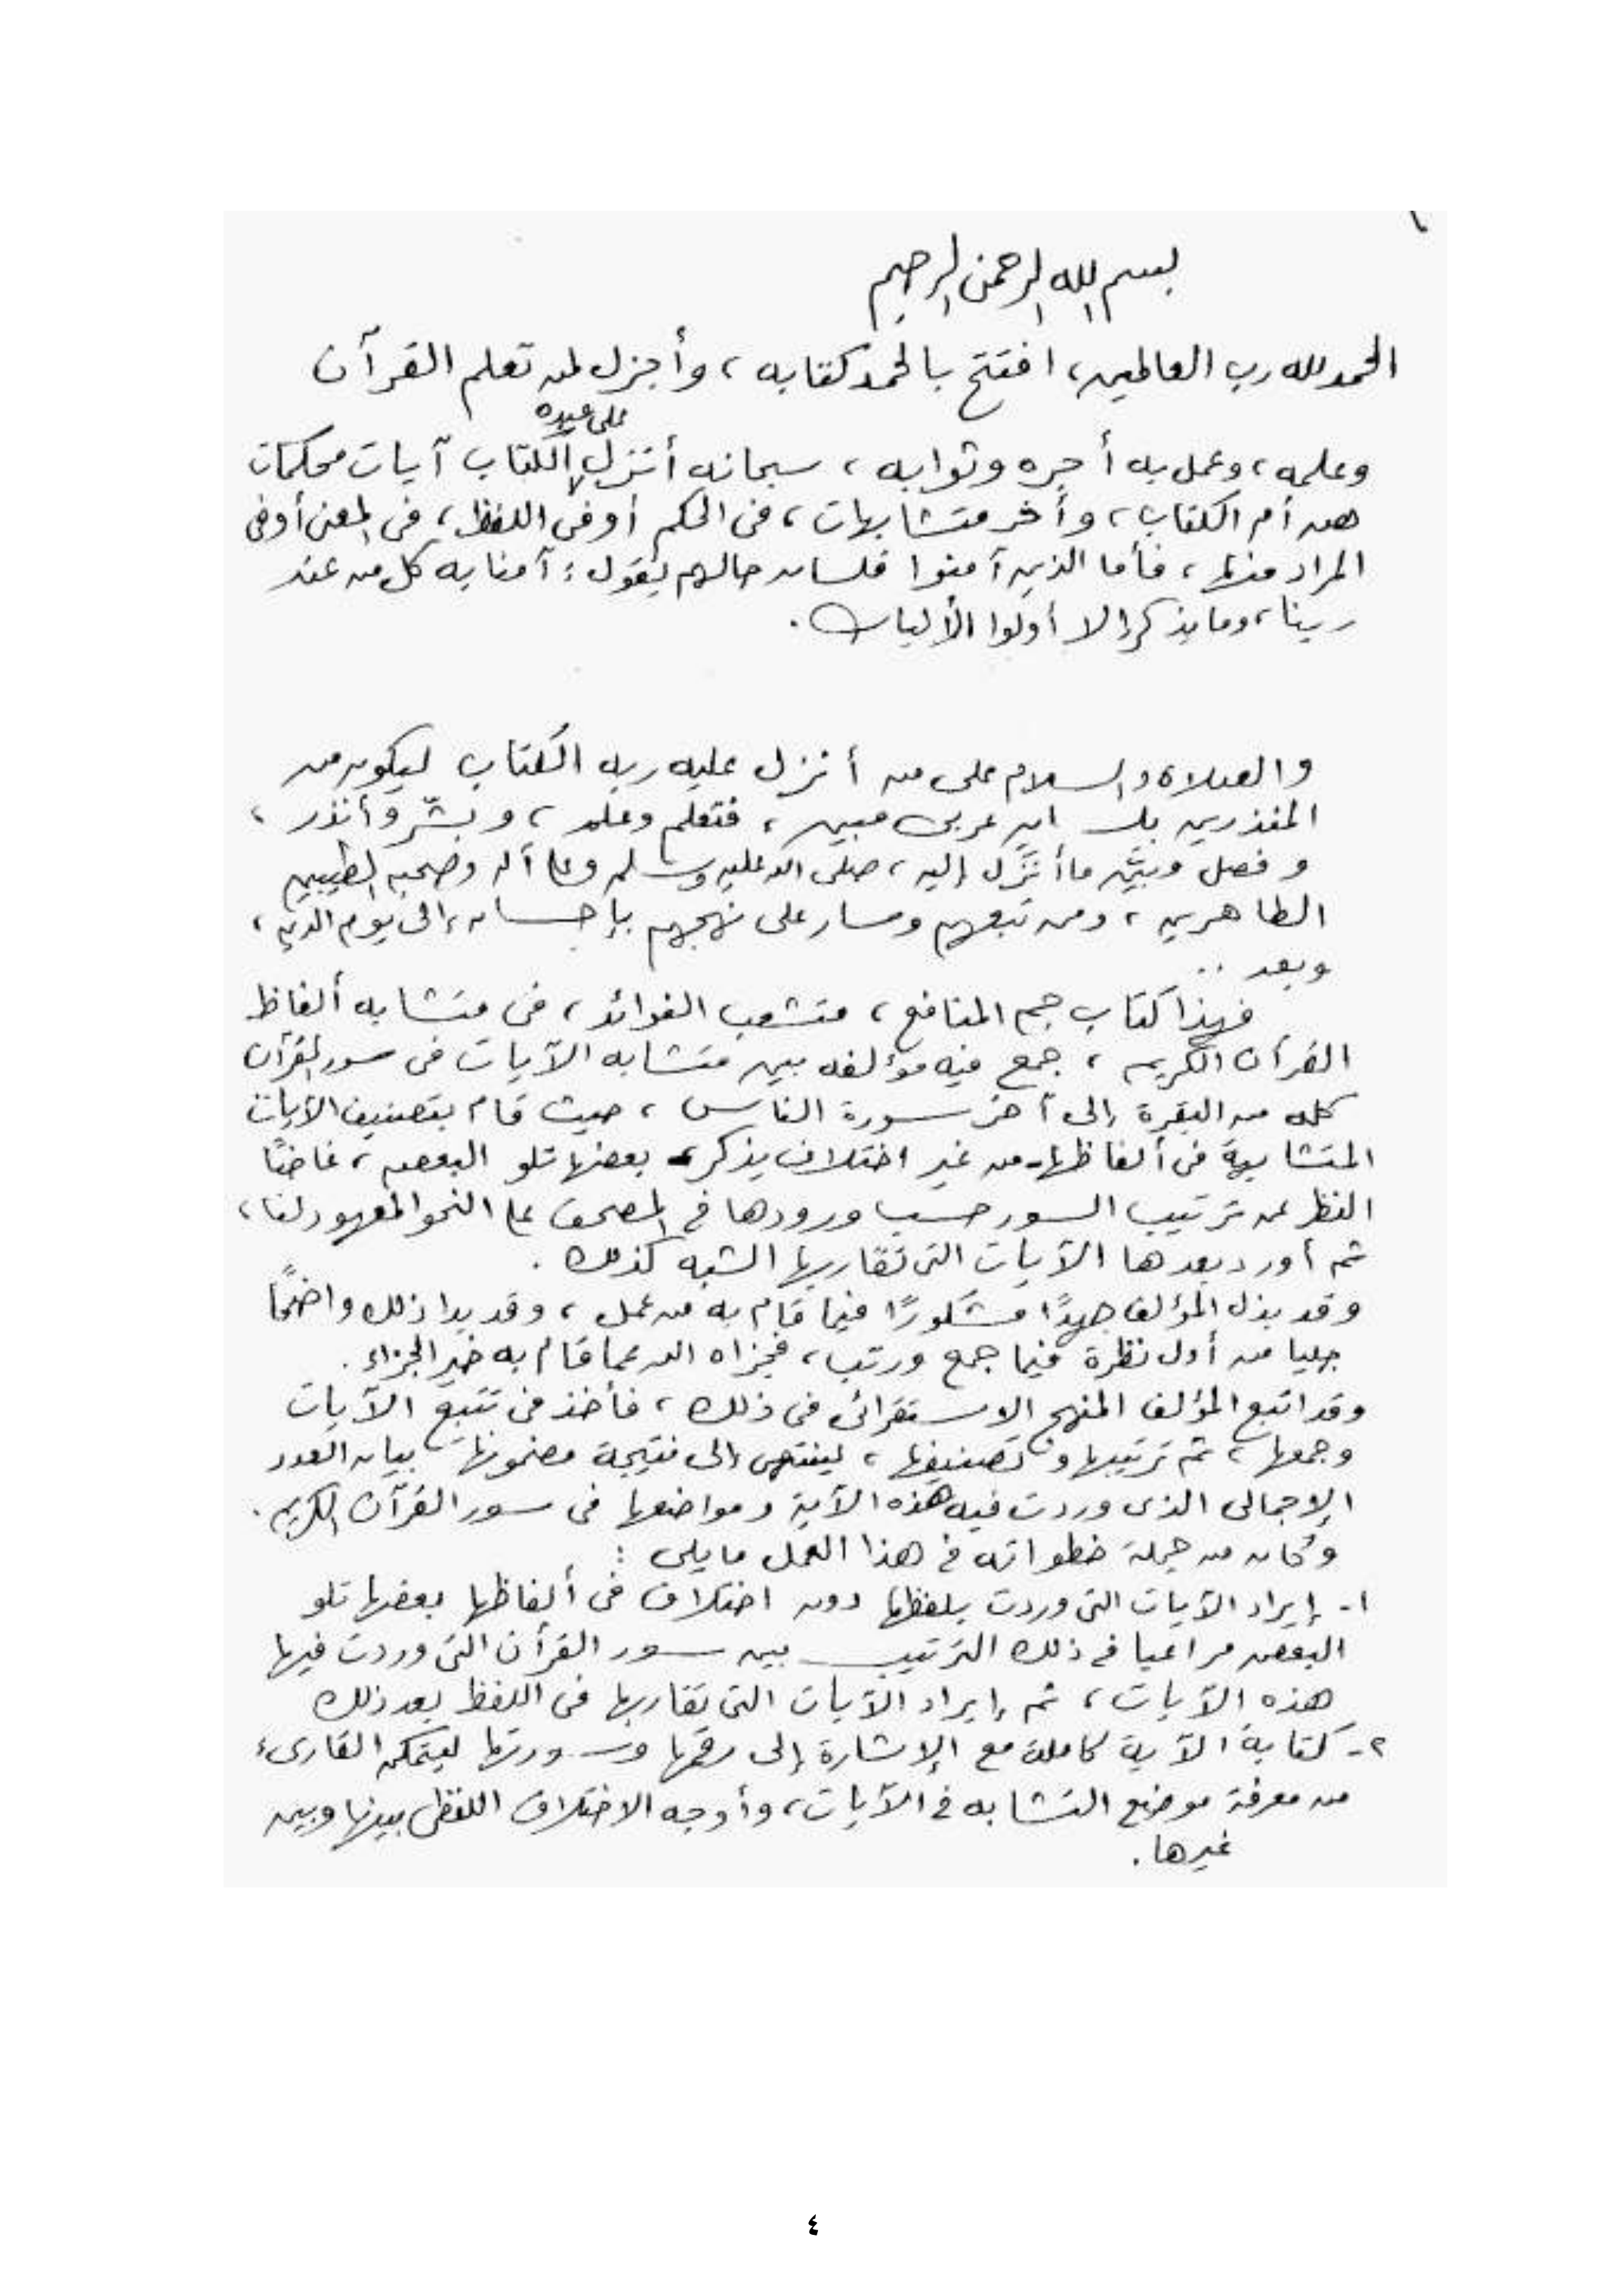 ١
بسم الله الرحمن الرحيم
الحمد لله رب العالمين، افتتح بالحمد كتابه، وأجزل لمن تعلم القرآن
على عبده
وعلمه، وعمل به أجره وثوابه، سبحانه أنزل الكتاب آيات محكمات
هن أم الكتاب، وأخر متشابهات، فى الحكم أو فى اللفظ، فى المعنى أو فى
المراد منها، فأما الذين آمنوا فلسان حالهم يقول: آمنا به كل من عند
ربنا، وما يذكر إلا أولوا الألباب.
والصلاة والسلام على من أنزل عليه ربه الكتاب ليكون من
المنذرين بلسان عربى مبين، فتعلم وعلم، وبشّر وأنذر،
وفصل وبيَّن ما أُنزِل إليه، صلى الله عليه وسلم وعلى آله وصحبه الطيبين
الطاهرين، ومن تبعهم وسار على نهجهم بإحسان إلى يوم الدين،
وبعد ..
فهذا كتاب جم المنافع، متشعب الفوائد، فى متشابه ألفاظ
القرآن الكريم، جمع فيه مؤلفه بين متشابه الآيات فى سور القرآن
كله من البقرة إلى آخر سورة الناس، حيث قام بتصنيف الآيات
المتشابهة فى ألفاظها - من غير اختلاف يذكر - بعضها تلو البعض، غاضًا
النظر عن ترتيب السور حسب ورودها فى المصحف على النحو المعهود لنا،
ثم أورد بعدها الآيات التى تقاربها الشبه كذلك.
وقد بذل المؤلف جهدًا مشكورًا فيما قام به من عمل، وقد بدا ذلك واضحًا
جليا من أول نظرة فيما جمع ورتب، فجزاه الله عما قام به خير الجزاء.
وقد اتبع المؤلف المنهج الاستقرائى فى ذلك، فأخذ فى تتبع الآيات
وجمعها، ثم ترتيبها وتصنيفها، لينتهى إلى نتيجة مضمونها بيان العدد
الإجمالى الذى وردت فيه هذه الآية ومواضعها فى سور القرآن الكريم.
وكان من جملة خطواته فى هذا العمل ما يلى:
١- إيراد الآيات التى وردت بلفظها دون اختلاف فى ألفاظها بعضها تلو
البعض مراعيا فى ذلك الترتيب بين سور القرآن التى وردت فيها
هذه الآيات، ثم إيراد الآيات التى تقاربها فى اللفظ بعد ذلك
٢- كتابة الآية كاملة مع الإشارة إلى رقمها وسورتها ليتمكن القارىء
من معرفة موضع التشابه فى الآيات، وأوجه الاختلاف اللفظى بينها وبين
غيرها.
٤